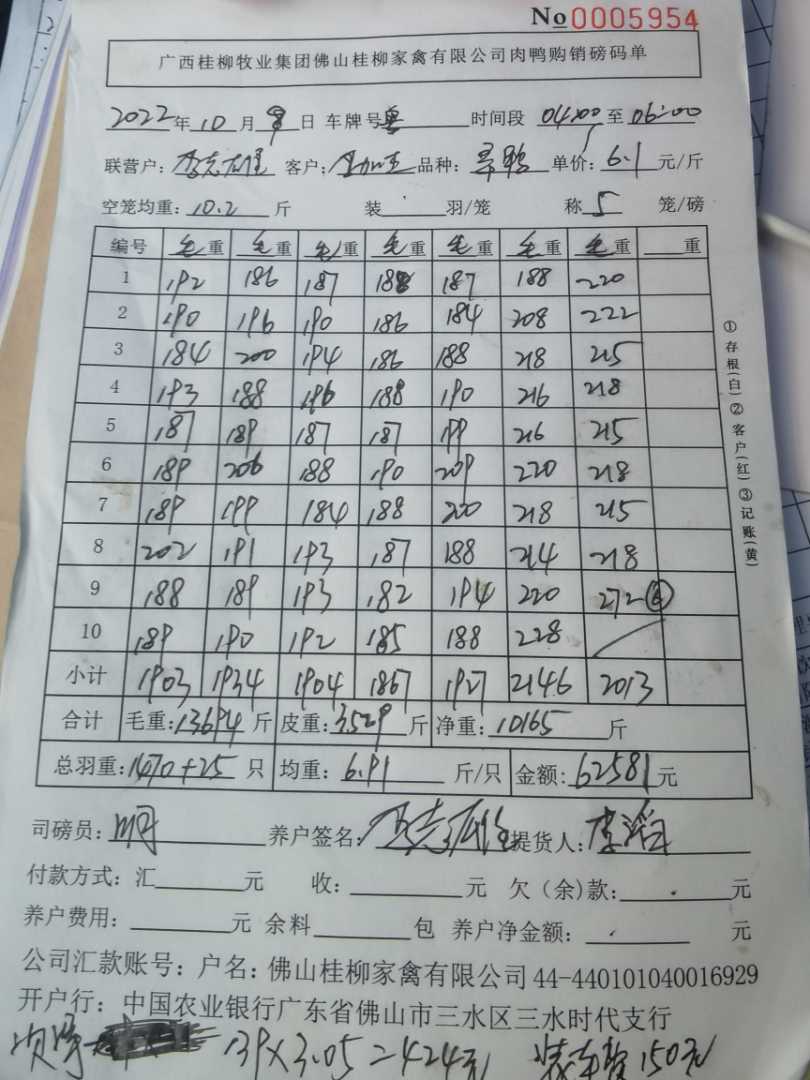 No 0005954
广西桂柳牧业集团佛山桂柳家禽有限公司肉鸭购销磅码单
2022年10月9日 车牌号 粤 时间段 04:00 至 06:00
联营户: 客户: 品种: 单价: 6.1 元/斤
空笼均重: 10.2 斤 装 羽/笼 称 5 笼/磅
编号 毛重 毛重 毛重 毛重 毛重 毛重 毛重 重
1 192 186 187 188 187 188 220
2 190 196 190 186 184 208 222
3 184 200 194 186 188 218 215
4 193 188 196 188 190 216 218
5 187 189 187 187 199 216 215
6 189 206 188 190 209 220 218
7 189 199 184 188 200 218 215
8 202 191 193 187 188 214 218
9 188 189 193 182 194 220 272
10 189 190 192 185 188 228
小计 1903 1934 1904 1867 1927 2146 2013
合计 毛重: 13694 斤 皮重: 3529 斤 净重: 10165 斤
总羽重: 1470+25 只 均重: 6.91 斤/只 金额: 62581 元
司磅员: 养户签名: 提货人:
付款方式: 汇 元 收: 元 欠(余)款: 元
养户费用: 元 余料 包 养户净金额: 元
公司汇款账号: 户名: 佛山桂柳家禽有限公司 44-440101040016929
开户行: 中国农业银行广东省佛山市三水区三水时代支行
139×3.05=424元 装车费150元
①存根(白)②客户(红)③记账(黄)